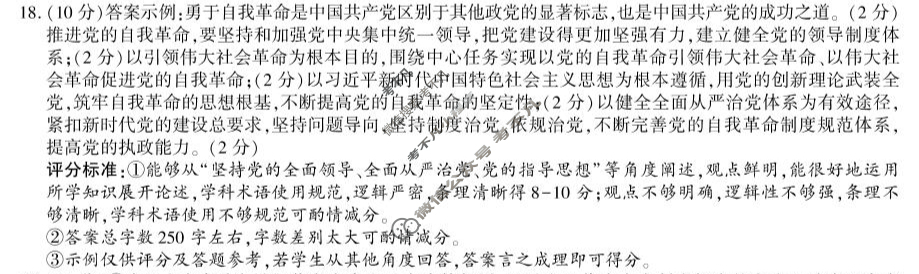 18.(10分)答案示例:勇于自我革命是中国共产党区别于其他政党的显著标志,也是中国共产党的成功之道。(2分)
推进党的自我革命,要坚持和加强党中央集中统一领导,把党建设得更加坚强有力,建立健全党的领导制度体
系;(2分)以引领伟大社会革命为根本目的,围绕中心任务实现以党的自我革命引领伟大社会革命、以伟大社
会革命促进党的自我革命;(2分)以习近平新时代中国特色社会主义思想为根本遵循,用党的创新理论武装全
党,筑牢自我革命的思想根基,不断提高党的自我革命的坚定性;(2分)以健全全面从严治党体系为有效途径,
紧扣新时代党的建设总要求,坚持问题导向,坚持制度治党、依规治党,不断完善党的自我革命制度规范体系,
提高党的执政能力。(2分)
评分标准:①能够从“坚持党的全面领导、全面从严治党、党的指导思想”等角度阐述,观点鲜明,能很好地运用
所学知识展开论述,学科术语使用规范,逻辑严密,条理清晰得8-10分;观点不够明确,逻辑性不够强,条理不
够清晰,学科术语使用不够规范可酌情减分。
②答案总字数250字左右,字数差别太大可酌情减分。
③示例仅供评分及答题参考,若学生从其他角度回答,答案言之成理即可得分。